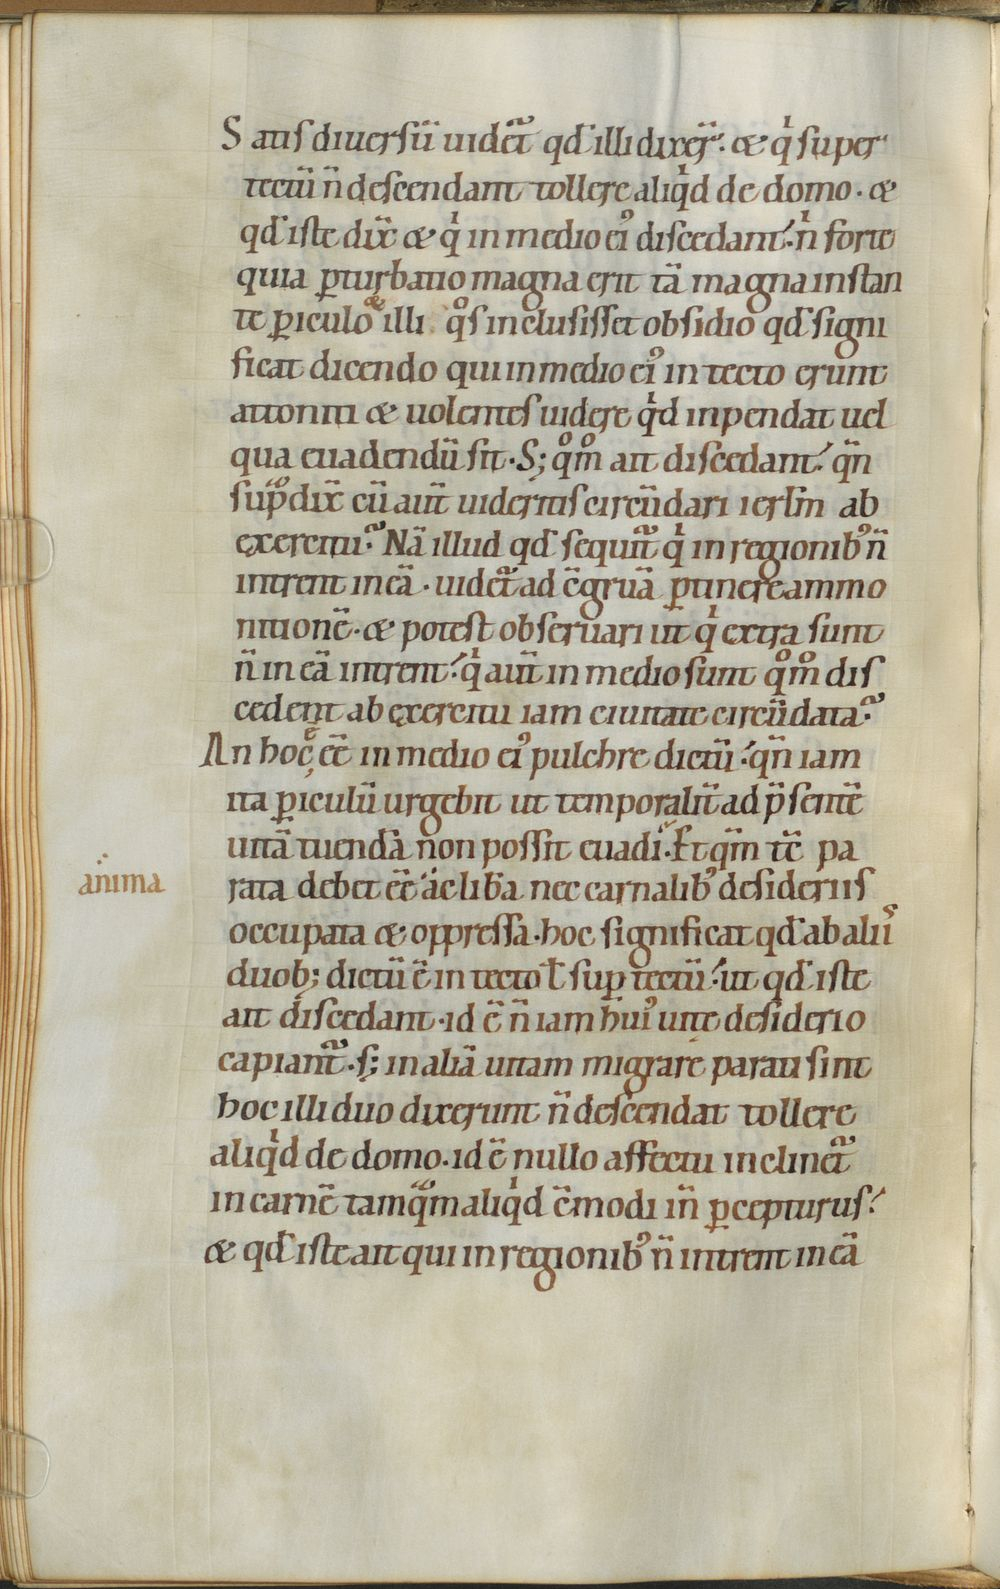 Satis diuersū uidet᷑ qđ illi dixer̄. & qͥ super
tectū n̄ descendant tollere aliqͥd de domo. &
qđ iste dix̄ & qͥ in medio ei᷒ discedant. n̄ forte
quia ꝑturbatio magna erit tā magna instan
te ꝑiculo & illi qͦs inclusisset obsidio qđ signi
ficat dicendo qui in medio ei᷒ in tecto erunt
attoniti & uolentes uidere qͥd inpendat uel
qua euadendū sit. S; qͦmͦ ait discedant? qn̄
sup̱ dix̄ cū aut̄ uideritis circūdari ierłm ab
exercitu? Nā illud qđ sequit᷑ qͥ in regionib᷒ n̄
intrent in eā. uidet᷑ ad c̄gruā ꝑtinere ammo
nitionē. & potest obseruari ut qͥ extra sunt
n̄ in eā intrent. qͥ aut̄ in medio sunt qͦmͦ dis
cedent ab exercitu iam ciuitate circūdata?
An hoc ē ēē in medio ei᷒ pulchre dictū. qn̄ iam
ita ꝑiculū urgebit ut temporalit̄ ad p̄sentē
uitā tuendā non possit euadi. Et qm̄ tc̄ pa
rata debet ēē ac lib̄a nec carnalib᷒ desideriis
anima
occupata & oppressa. hoc significat qđ ab aliis
duob; dictū ē in tecto ł sup̱ tectū. ut qđ iste
ait discedant. id ē n̄ iam hui᷒ uite desiderio
capiant᷑. s; in aliā uitam migrare parati sint
hoc illi duo dixerunt n̄ descendat tollere
aliqͥd de domo. id ē nullo affectu inclinet᷑
in carnē tamquam aliqͥd c̄modi in̄ ꝑcepturus.
& qđ iste ait qui in regionib᷒ n̄ intrent in eā